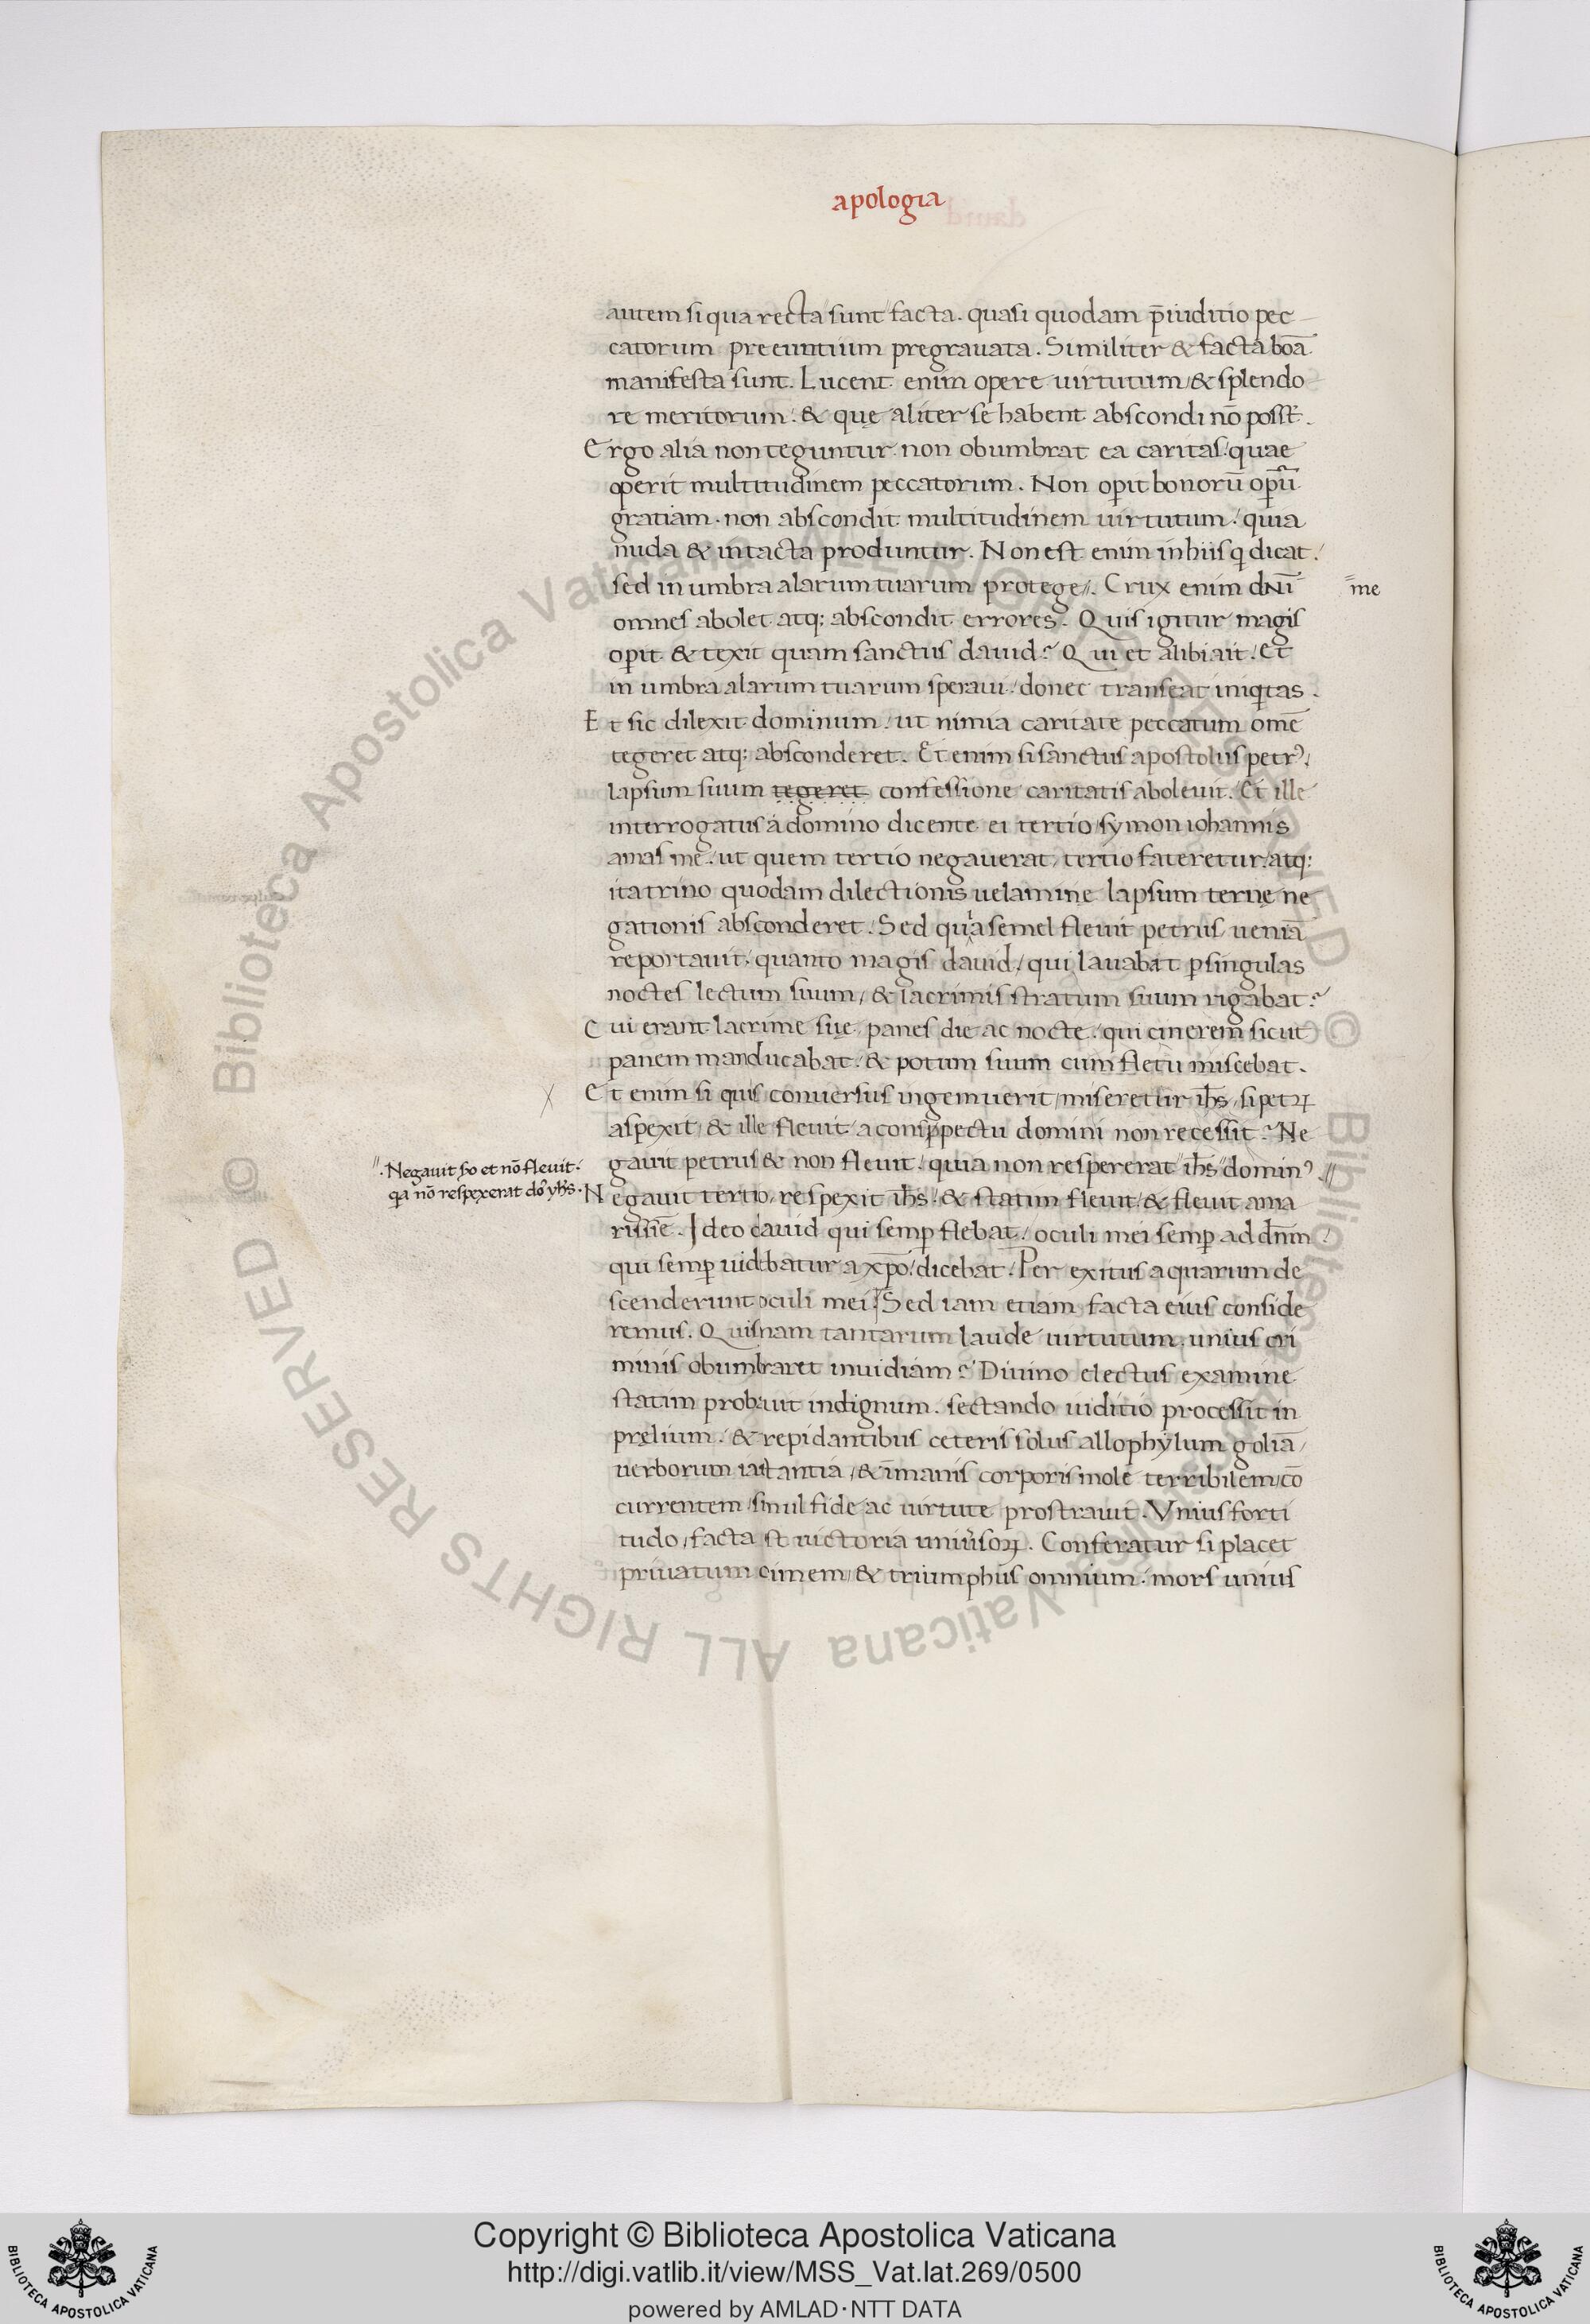 apologia
autem si qua recta sunt facta. quasi quodam p̄iuditio pec
catorum preeuntium pregrauata. Similiter & facta boā
manifesta sunt. Lucent enim opere uirtutum / & splendo
re meritorum / & quę aliter se habent abscondi nō posst̄.
Ergo alia non teguntur non obumbrat ea caritas / quae
operit multitudinem peccatorum. Non opit bonorū opū
gratiam. non abscondit multitudinem uirtutum / quia
nuda & intacta produntur. Non est enim in hiis q dicat.
sed in umbra alarum tuarum protege //. Crux enim dNī
=me
omnes abolet atq; abscondit errores. Quis igitur magis
opit & texit quam sanctus dauid? Qui et alibi ait / et
in umbra alarum tuarum speraui / donec transeat iniqtas.
Et sic dilexit dominum / ut nimia caritate peccatum omē
tegeret atq; absconderet. Et enim si sanctus apostolus petrꝰ /
lapsum suum tegeret confessione caritatis aboleuit. Et ille
interrogatus á domino dicente ei tertio / symon iohannis
amas me / ut quem tertio negauerat / tertio fateretur / atq;
ita trino quodam dilectionis uelamine lapsum ternę ne
gationis absconderet. Sed quia semel fleuit petrus ueniā
reportauit / quanto magis dauid / qui lauabat ꝑ singulas
noctes lectum suum / & lacrimis stratum suum rigabat?
Cui erant lacrime suę panes die ac nocte / qui cinerem sicut
panem manducabat / & potum suum cum fletu miscebat.
Et enim si quis conuersus ingemuerit / miseretur ihs̄ / si petꝝ
aspexit / & ille fleuit / a conspectu domini non recessit? Ne
gauit petrus & non fleuit / quia non respexerat "ihs̄" dominꝰ //
"· Negauit ṗo et nō fleuit.
qa nō respexerat do᷒ yhs̄ ·
Negauit tertio / respexit ihs̄ / & statim fleuit / & fleuit ama
rissiē. Ideo dauid qui semꝑ flebat / oculi mei semꝑ ad dn̄m /
qui semꝑ uidebatur a xp̄o / dicebat. Per exitus aquarum de
scenderunt oculi mei. Sed iam etiam facta eius conside
remus. Quisnam tantarum laude uirtutum / unius cri
minis obumbraret inuidiam? Diuino electus examine
statim probauit indignum. sectando uiditio processit in
pręlium / & repidantibus ceteris solus allophylum goliā /
uerborum iactantia / & īmanis corporis mole terribilem / cō
currentem / simul fide ac uirtute prostrauit. Vnius forti
tudo / facta st uictoria uniuersoꝝ. Conferatur si placet
priuatum crimem / & triumphus omnium. mors unius
Copyright © Biblioteca Apostolica Vaticana
http://digi.vatlib.it/view/MSS_Vat.lat.269/0500
powered by AMLAD·NTT DATA